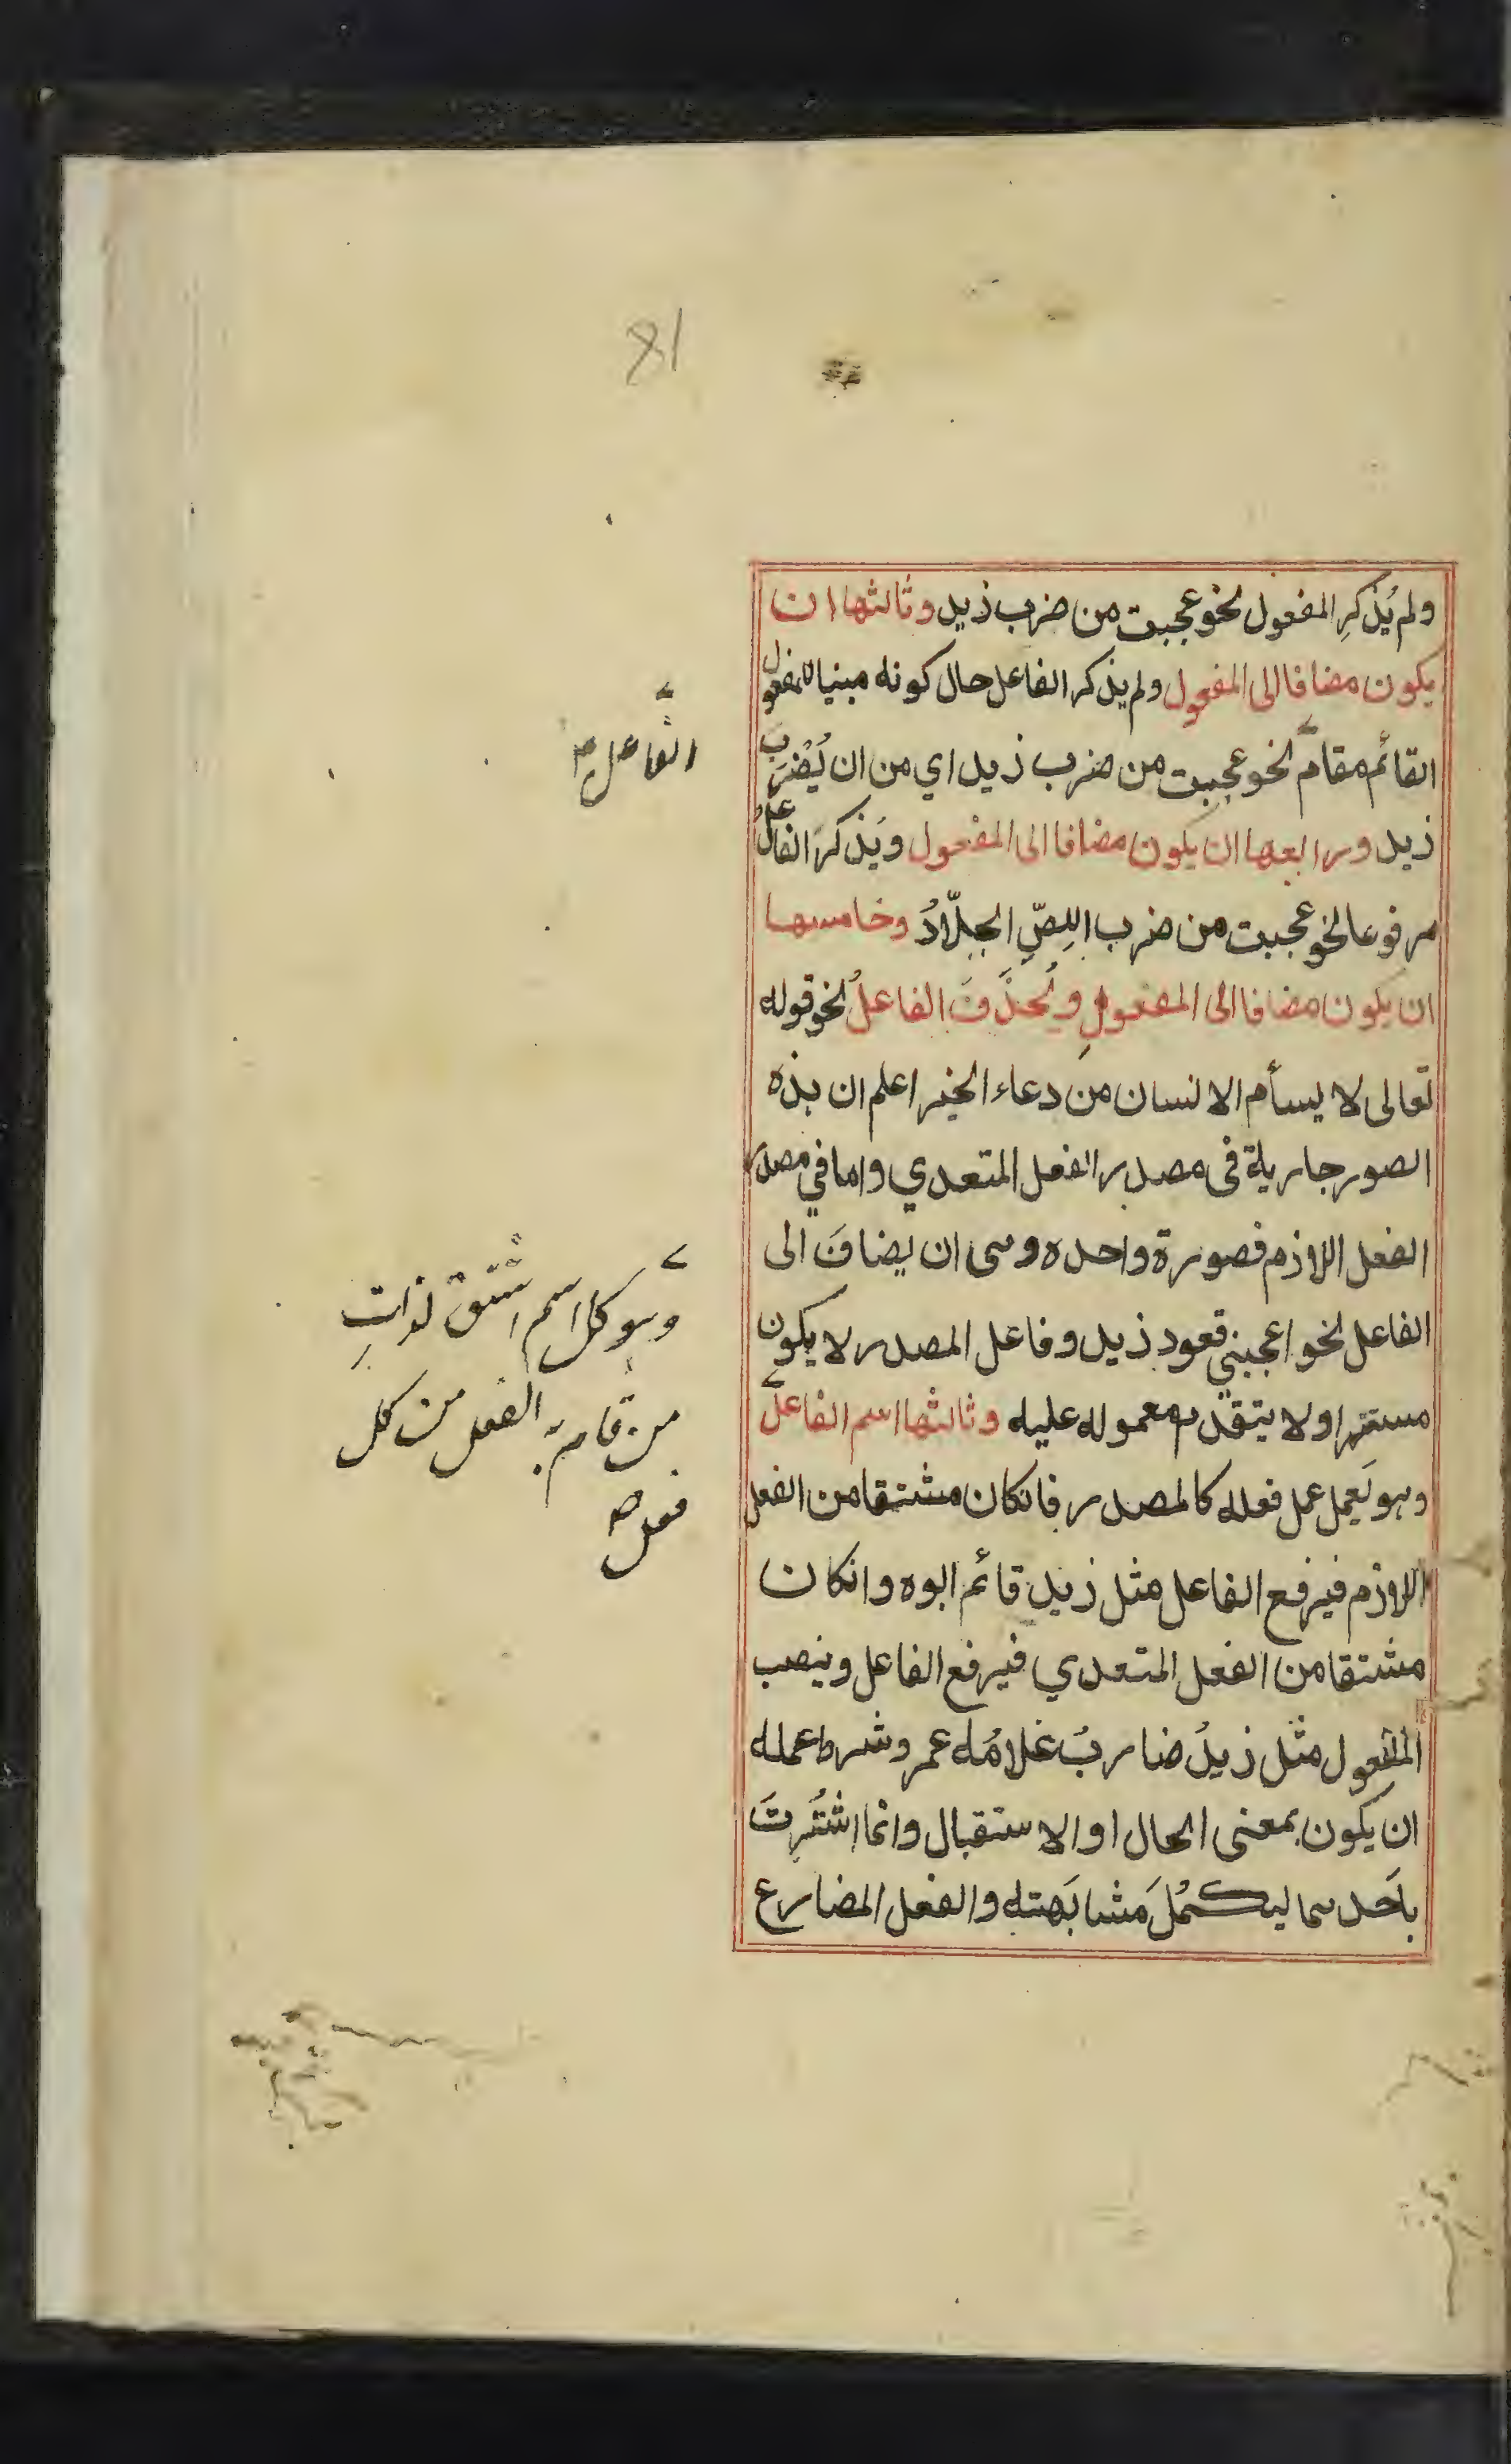 ولم يُذكرِ المفعول نحو عجبت من ضرب زيد وثالثها ان
يكون مضافا الى المفعول ولم يذكر الفاعل حال كونه مبنيا للمفعول
القائم مقام نحو عجبت من ضرب زيد اي من ان يُضْرَبَ
زيد ورابعها ان يكون مضافا الى المفعول ويذكر الفاعل
مرفوعا نحو عجبت من ضرب اللِصِّ الجلّادُ وخامسها
ان يكون مضافا الى المفعولِ ويُحذَفَ الفاعلُ نحو قوله
تعالى لا يسأم الانسان من دعاء الخير اعلم ان هذه
الصور جارية فى مصدر الفعل المتعدي واما في مصدر
الفعل اللازم فصورة واحده وهى ان يضافَ الى
الفاعل نحو اعجبني قعود زيد وفاعل المصدر لا يكون
مستترا ولا يتقدم معموله عليه وثالثها اسم الفاعل
وهو يَعمل عمل فعله كالمصدر فانكان مشتقا من الفعل
اللازم فيرفع الفاعل مثل زيد قائم ابوه وانكان
مشتقا من الفعل المتعدي فيرفع الفاعل وينصب
المفعول مثل زيدُ ضاربُ غلامُه عمر وشرط عمله
ان يكون بمعنى الحال او الاستقبال وانما اشتُرِتَ
باَحدهما ليكمُلَ مَشابَهته والفعل المضارع
81
الفاعل
وهو كل اسم اشتق لذاتِ
من قام به الفعل من كل
فعل